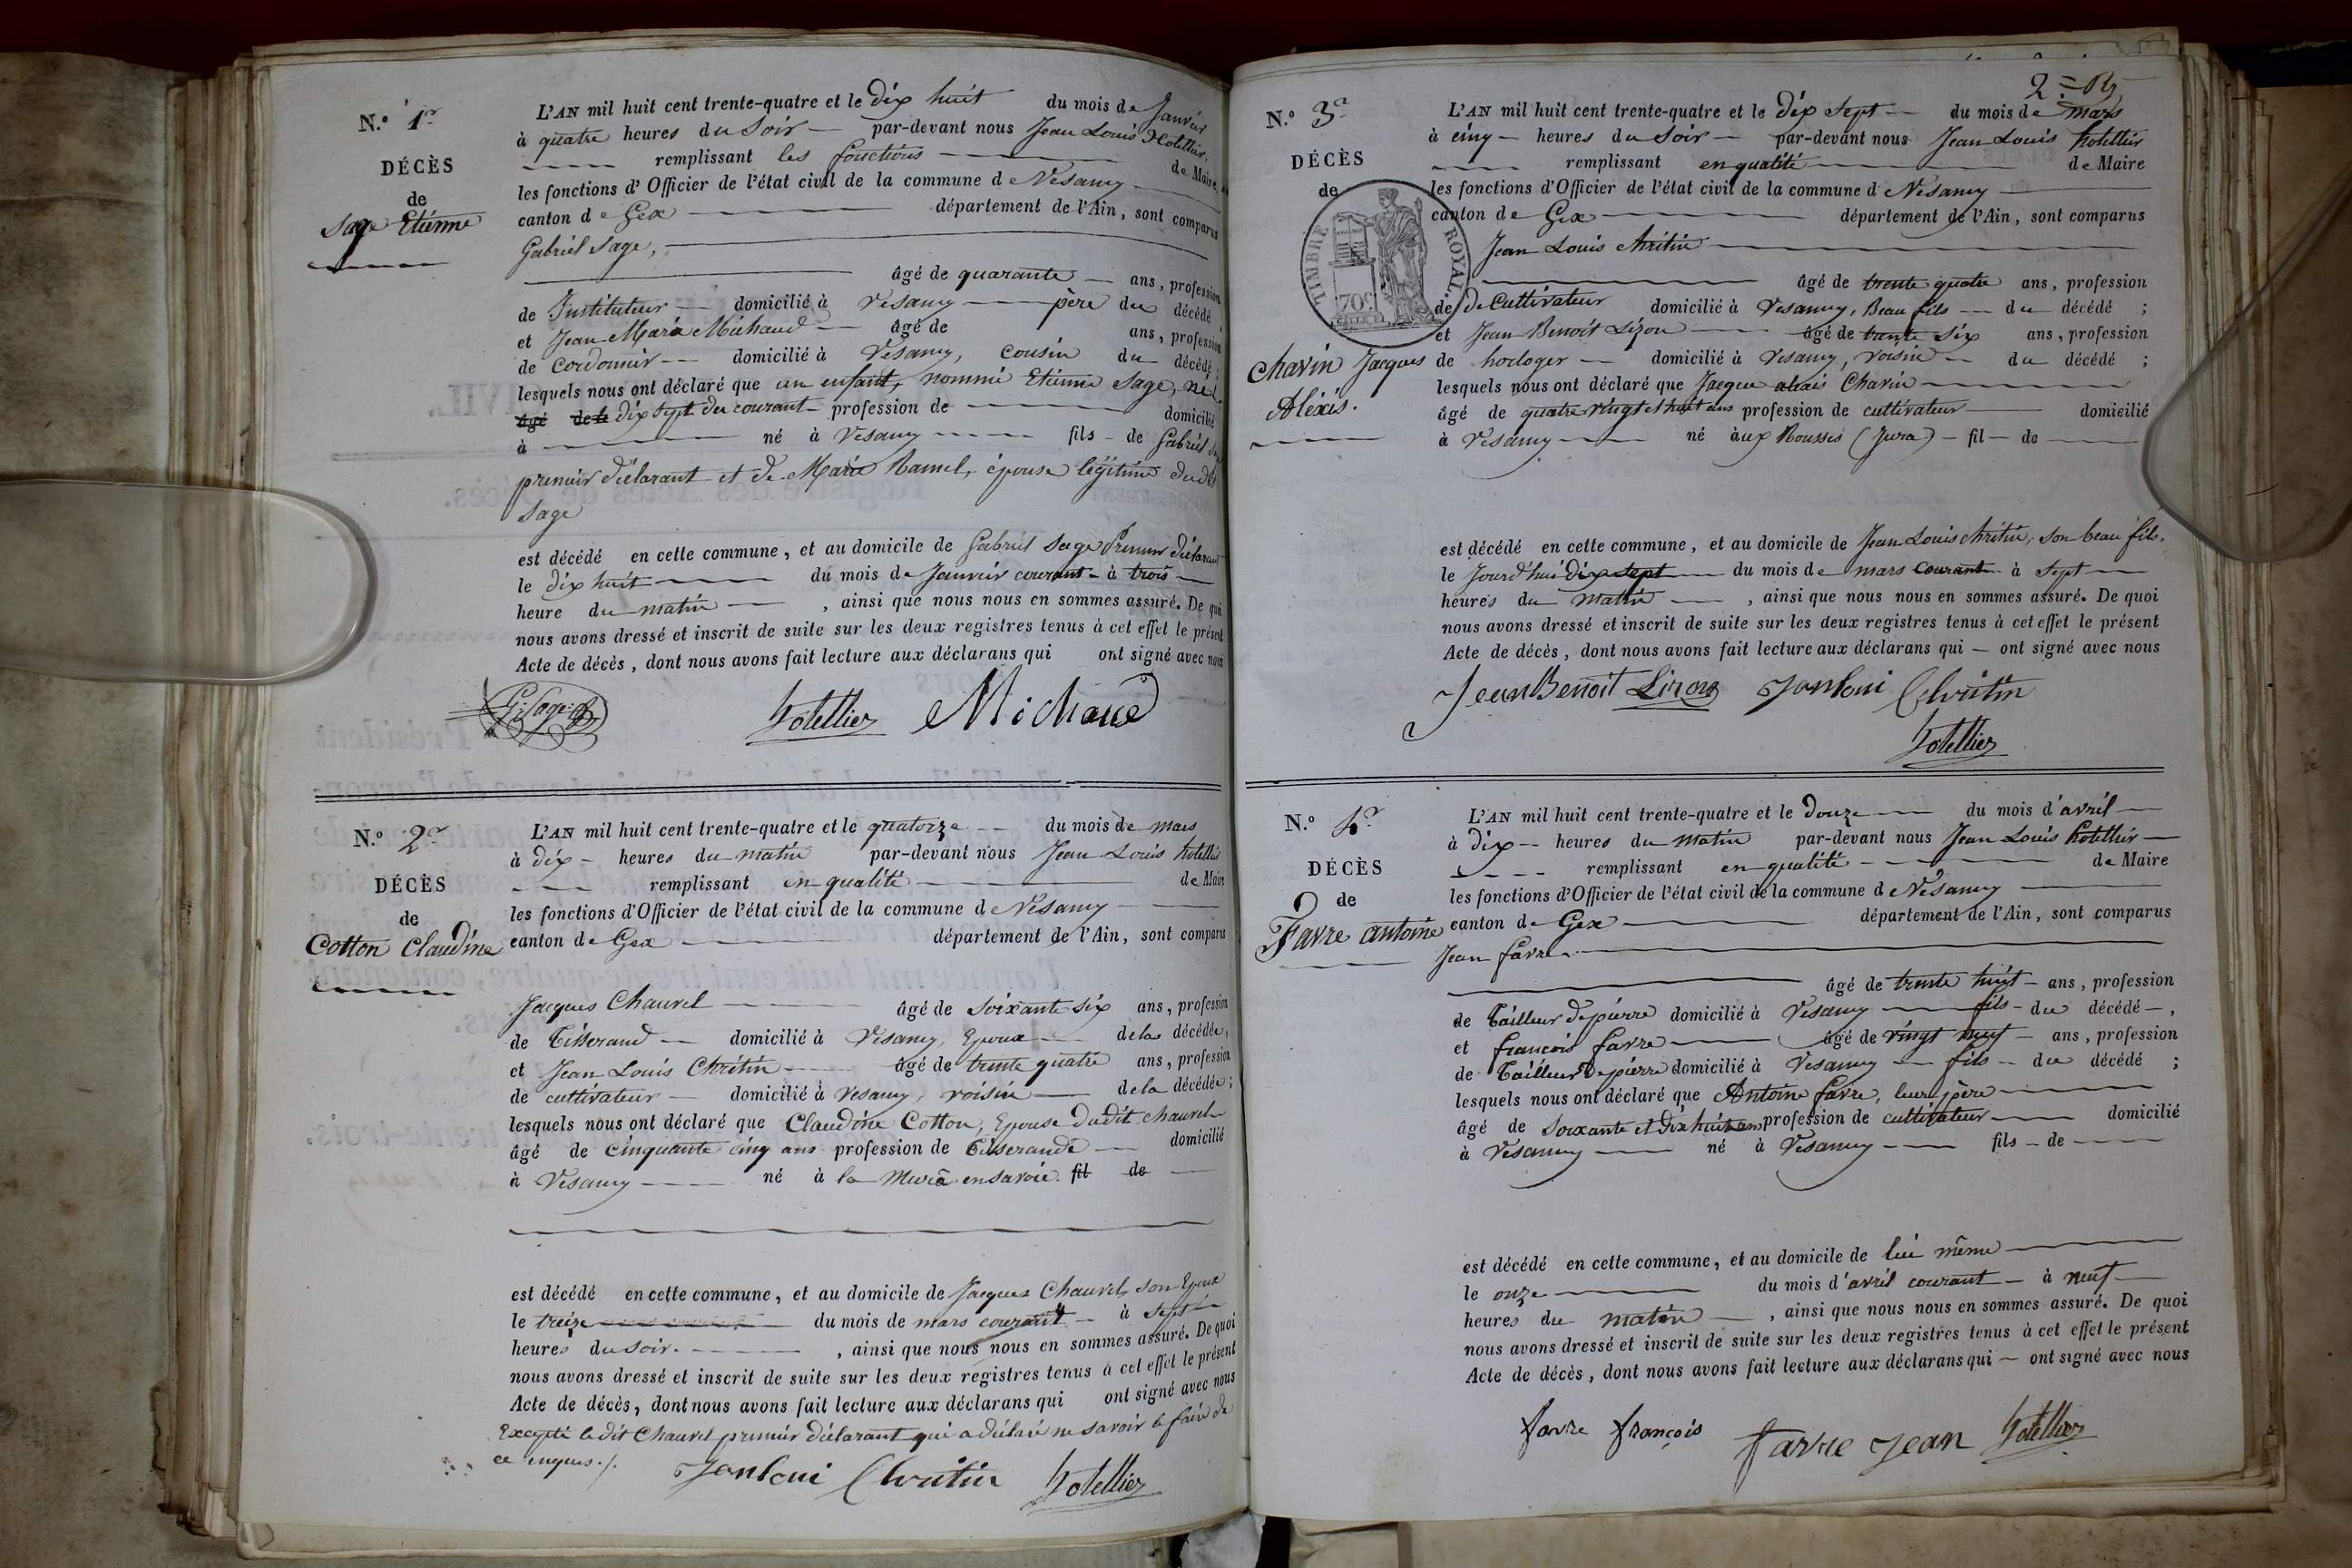 N.º 1er
DÉCÈS
de
Sage Etienne
L'AN mil huit cent trente-quatre et le dix huit du mois de Janvier
à quatre heures du Soir par-devant nous Jean Louis Hotellier
remplissant les fonctions de Maire
les fonctions d'Officier de l'état civil de la commune de Vesancy
canton de Gex département de l'Ain, sont comparus
Gabriel Sage,
âgé de quarante ans, profession
de Instituteur domicilié à Vesancy père du décédé
et Jean Marie Michaud âgé de ans, profession
de cordonnier domicilié à Vesancy, cousin du décédé;
lesquels nous ont déclaré que un enfant, nommé Etienne Sage, né le
âgé de le dix sept du courant profession de domicilié
à né à Vesancy fils de Gabriel
premier déclarant et de Marie Ramel, épouse légitime dudit
Sage
est décédé en cette commune, et au domicile de Gabriel Sage Premier déclarant
le dix huit du mois de Janvier courant à trois
heure du matin, ainsi que nous nous en sommes assuré. De quoi
nous avons dressé et inscrit de suite sur les deux registres tenus à cet effet le présent
Acte de décès, dont nous avons fait lecture aux déclarans qui ont signé avec nous
G: Sage Hotellier Michaud
N.º 2e
DÉCÈS
de
Cotton Claudine
L'AN mil huit cent trente-quatre et le quatorze du mois de mars
à dix heures du matin par-devant nous Jean Louis hotellier
remplissant en qualité de Maire
les fonctions d'Officier de l'état civil de la commune de Vesancy
canton de Gex département de l'Ain, sont comparus
Jacques Chauvel âgé de soixante six ans, profession
de Tisserand domicilié à Vesancy, Epoux de la décédée,
et Jean Louis Chrétin âgé de trente quatre ans, profession
de cultivateur domicilié à Vesancy, voisin de la décédée;
lesquels nous ont déclaré que Claudine Cotton, Epouse dudit chauvel
âgé de cinquante cinq ans profession de Tisserande domicilié
à Vesancy né à la Mura en savoie. fil de
est décédé en cette commune, et au domicile de Jacques Chauvel, son Epoux
le treize du mois de mars courant à sept
heures du soir, ainsi que nous nous en sommes assuré. De quoi
nous avons dressé et inscrit de suite sur les deux registres tenus à cet effet le présent
Acte de décès, dont nous avons fait lecture aux déclarans qui ont signé avec nous
Excepté ledit Chauvel premier déclarant qui a déclaré ne savoir le faire de
ce enquis ./.
Janloui Chritin Hotellier
2=
N.º 3e
DÉCÈS
de
TIMBRE ROYAL
70c
Chavin Jacques
Aléxis.
L'AN mil huit cent trente-quatre et le dix sept du mois de mars
à cinq heures du soir par-devant nous Jean Louis hotellier
remplissant en qualité de Maire
les fonctions d'Officier de l'état civil de la commune d Vesancy
canton de Gex département de l'Ain, sont comparus
Jean Louis chrétin
âgé de trente quatre ans, profession
de de cultivateur domicilié à Vesancy, Beau fils du décédé;
et Jean Benoît Lizon âgé de trente six ans, profession
de horloger domicilié à Vesancy, voisin du décédé;
lesquels nous ont déclaré que Jacques Chavin
âgé de quatre vingt et huit ans profession de cultivateur domicilié
à Vesancy né aux Rousses (Jura) fil de
est décédé en cette commune, et au domicile de Jean Louis chrétin, son beau fils.
le Jourd'hui dix sept du mois de mars courant à sept
heures du matin, ainsi que nous nous en sommes assuré. De quoi
nous avons dressé et inscrit de suite sur les deux registres tenus à cet effet le présent
Acte de décès, dont nous avons fait lecture aux déclarans qui ont signé avec nous
Jean Benoit Lizon Janloui Chritin
Hotellier
N.º 4e
DÉCÈS
de
Favre antoine
L'AN mil huit cent trente-quatre et le douze du mois d'avril
à dix heures du matin par-devant nous Jean Louis hotellier
remplissant en qualité de Maire
les fonctions d'Officier de l'état civil de la commune de Vesancy
canton de Gex département de l'Ain, sont comparus
Jean favre
âgé de trente huit ans, profession
de Tailleur de pierre domicilié à Vesancy fils du décédé,
et françois favre âgé de vingt neuf ans, profession
de Tailleur de pierre domicilié à Vesancy fils du décédé;
lesquels nous ont déclaré que Antoine favre, leur père
âgé de soixante et dix huit ans profession de cultivateur domicilié
à Vesancy né à Vesancy fils de
est décédé en cette commune, et au domicile de lui même
le onze du mois d'avril courant à neuf
heures du matin, ainsi que nous nous en sommes assuré. De quoi
nous avons dressé et inscrit de suite sur les deux registres tenus à cet effet le présent
Acte de décès, dont nous avons fait lecture aux déclarans qui ont signé avec nous
favre françois favre Jean Hotellier